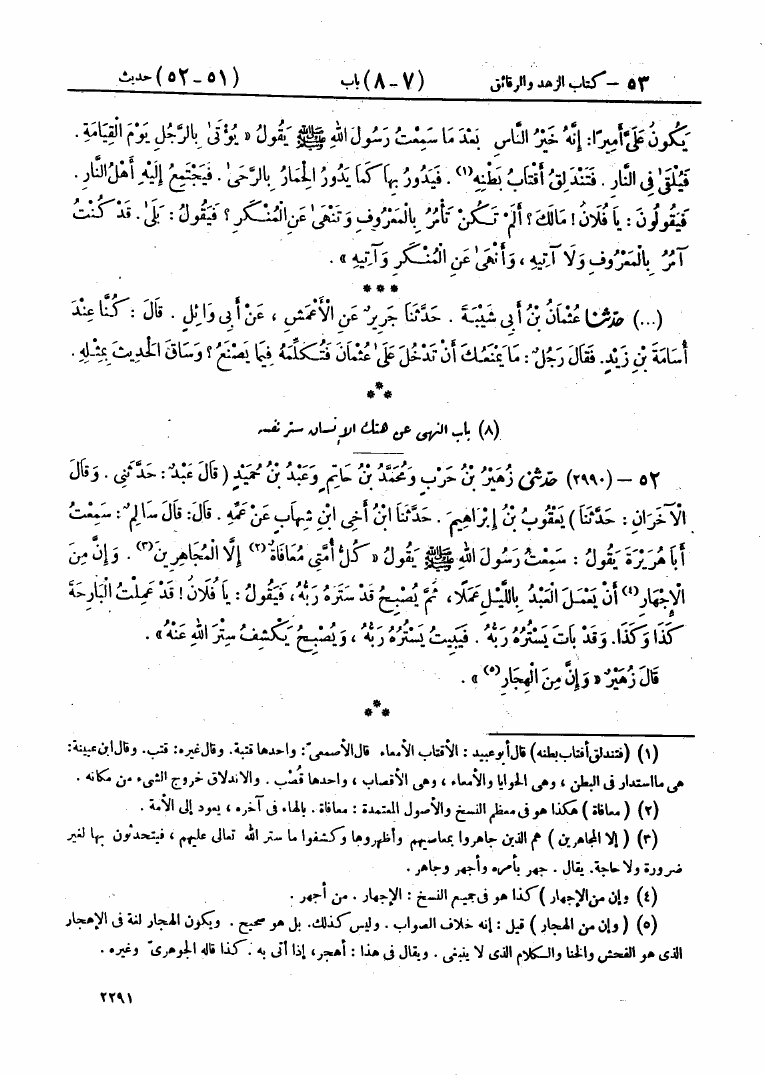 ٥٣ – كتاب الزهد والرقائق (٧ – ٨) باب (٥١ – ٥٢) حديث
يَكُونُ عَلَىَّ أَمِيرًا: إِنَّهُ خَيْرُ النَّاسِ بَعْدَ مَا سَمِعْتُ رَسُولَ اللهِ ﷺ يَقُولُ « يُؤْتَىٰ بِالرَّجُلِ يَوْمَ الْقِيَامَةِ .
فَيُلْقَىٰ فِى النَّارِ . فَتَنْدَلِقُ أَقْتَابُ بَطْنِهِ (١) . فَيَدُورُ بِهَا كَمَا يَدُورُ الْحِمَارُ بِالرَّحَىٰ . فَيَجْتَمِعُ إِلَيْهِ أَهْلُ النَّارِ .
فَيَقُولُونَ : يَا فُلَانُ ! مَالَكَ ؟ أَلَمْ تَكُنْ تَأْمُرُ بِالْمَعْرُوفِ وَتَنْهَىٰ عَنِ الْمُنْكَرِ ؟ فَيَقُولُ : بَلَىٰ . قَدْ كُنْتُ
آمُرُ بِالْمَعْرُوفِ وَلَا آتِيهِ ، وَأَنْهَىٰ عَنِ الْمُنْكَرِ وَآتِيهِ » .
***
(...) حَدَّثَنَا عُثْمَانُ بْنُ أَبِى شَيْبَةَ . حَدَّثَنَا جَرِيرٌ عَنِ الْأَعْمَشِ ، عَنْ أَبِى وَائِلٍ . قَالَ : كُنَّا عِنْدَ
أُسَامَةَ بْنِ زَيْدٍ. فَقَالَ رَجُلٌ : مَا يَمْنَعُكَ أَنْ تَدْخُلَ عَلَىٰ عُثْمَانَ فَتُكَلِّمَهُ فِيمَا يَصْنَعُ ؟ وَسَاقَ الْحَدِيثَ بِمِثْلِهِ .
***
(٨) باب النهى عن هتك الإنسان ستر نفسه
٥٢ – (٢٩٩٠) حَدَّثَنِى زُهَيْرُ بْنُ حَرْبٍ وَمُحَمَّدُ بْنُ حَاتِمٍ وَعَبْدُ بْنُ حُمَيْدٍ ( قَالَ عَبْدٌ : حَدَّثَنِى . وَقَالَ
الْآخَرَانِ : حَدَّثَنَا ) يَعْقُوبُ بْنُ إِبْرَاهِيمَ . حَدَّثَنَا ابْنُ أَخِى ابْنِ شِهَابٍ عَنْ عَمِّهِ . قَالَ: قَالَ سَالِمٌ : سَمِعْتُ
أَبَا هُرَيْرَةَ يَقُولُ : سَمِعْتُ رَسُولَ اللهِ ﷺ يَقُولُ « كُلُّ أُمَّتِى مُعَافَاةٌ (٢) إِلَّا الْمُجَاهِرِينَ (٣) . وَإِنَّ مِنَ
الْإِجْهَارِ (٤) أَنْ يَعْمَلَ الْعَبْدُ بِاللَّيْلِ عَمَلًا، ثُمَّ يُصْبِحُ قَدْ سَتَرَهُ رَبُّهُ، فَيَقُولُ : يَا فُلَانُ ! قَدْ عَمِلْتُ الْبَارِحَةَ
كَذَا وَكَذَا. وَقَدْ بَاتَ يَسْتُرُهُ رَبُّهُ . فَيَبِيتُ يَسْتُرُهُ رَبُّهُ ، وَيُصْبِحُ يَكْشِفُ سِتْرَ اللهِ عَنْهُ » .
قَالَ زُهَيْرٌ « وَإِنَّ مِنَ الْهِجَارِ (٥) » .
***
(١) ( فتندلق أقتاب بطنه ) قال أبو عبيد : الأقتاب الأمعاء قال الأصمعىّ: واحدها قتبة. وقال غيره: قتب. وقال ابن عيينة:
هى ما استدار فى البطن ، وهى الحوايا والأمعاء ، وهى الأقصاب ، واحدها قُصْب . والاندلاق خروج الشىء من مكانه .
(٢) ( معافاة ) هكذا هو فى معظم النسخ والأصول المعتمدة : معافاة . بالهاء فى آخره ، يعود إلى الأمة .
(٣) ( إلا المجاهرين ) هم الذين جاهروا بمعاصيهم وأظهروها وكشفوا ما ستر الله تعالى عليهم ، فيتحدثون بها لغير
ضرورة ولا حاجة. يقال . جهر بأمره وأجهر وجاهر .
(٤) ( وإن من الإجهار ) كذا هو فى جميع النسخ : الإجهار . من أجهر .
(٥) ( وإن من الهجار ) قيل : إنه خلاف الصواب . وليس كذلك. بل هو صحيح . ويكون الهجار لغة فى الإهجار
الذى هو الفحش والخنا والكلام الذى لا ينبغى . ويقال فى هذا : أهجر، إذا أتى به . كذا قاله الجوهرىّ وغيره .
٢٢٩١